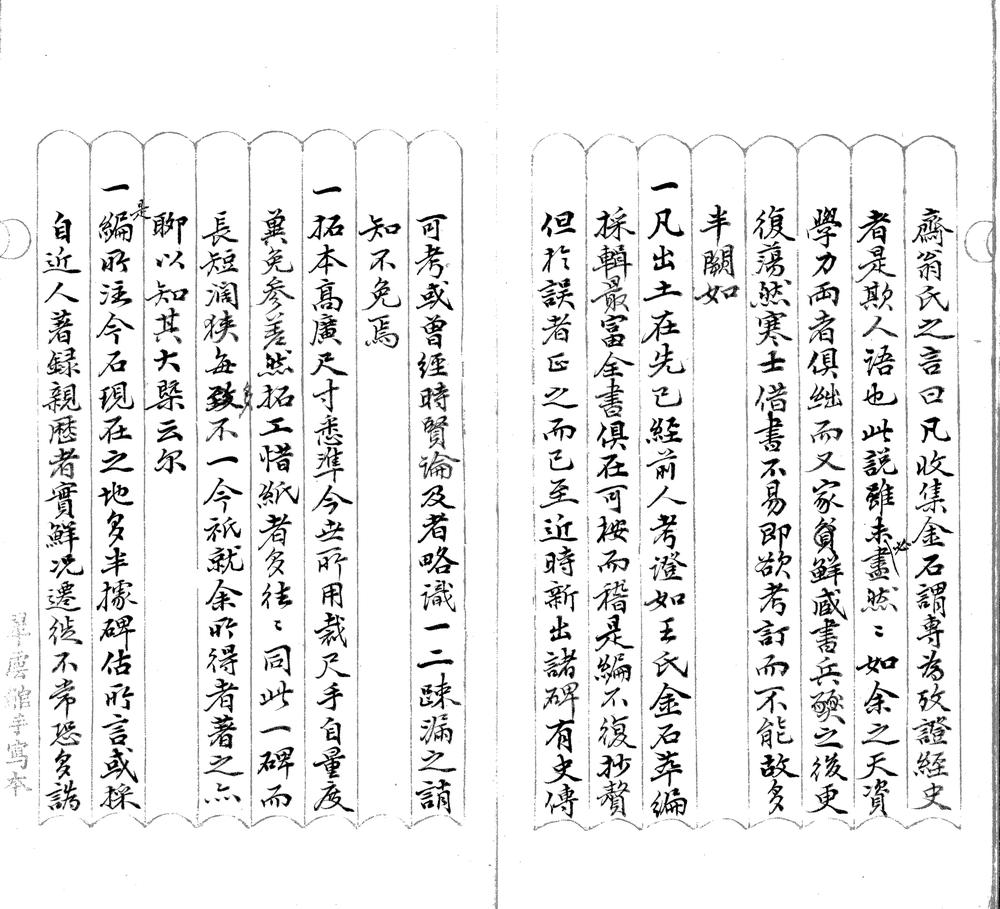 齋翁氏之言曰凡收集金石謂專為攷證經史
者是欺人語也此說雖未必盡然〻如余之天資
學力兩者俱絀而又家貧鮮藏書兵燹之後更
復蕩然寒士借書不易即欲考訂而不能故多
半闕如
一凡出土在先已經前人考證如王氏金石萃編
採輯最富全書俱在可按而稽是編不復抄贅
但於誤者正之而已至近時新出諸碑有史傳
可考或曾經時賢論及者略識一二疎漏之誚
知不免焉
一拓本高廣尺寸悉準今世所用裁尺手自量度
冀免參差然拓工惜紙者多往〻同此一碑而
長短濶狹每致不一今祇就余所得者著之亦
聊以知其大槩云尔
一是編所注今石現在之地多半據碑估所言或採
自近人著錄親歷者實鮮况遷徙不常恐多譌
翠雲館寫本